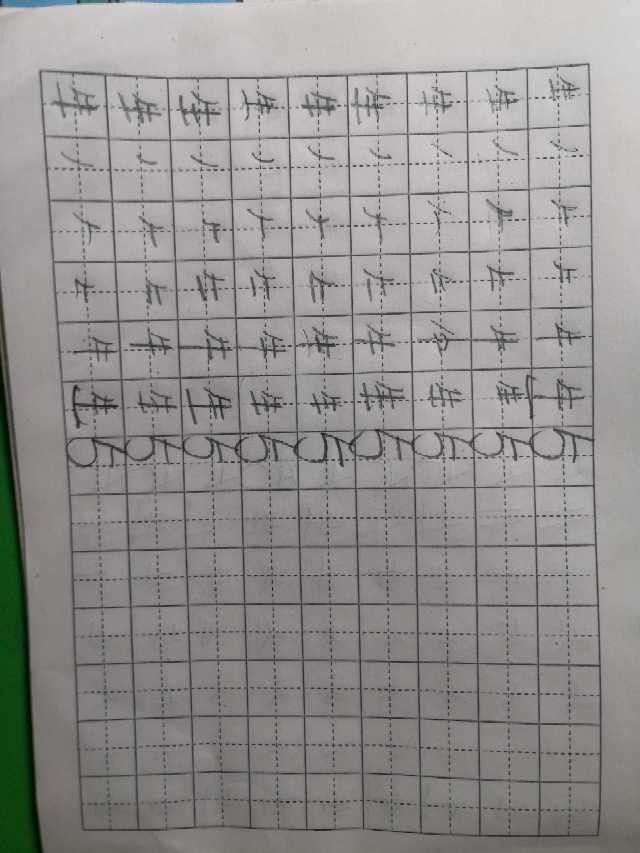 生丿𠂉牛生5
生丿𠂉牛生5
生丿𠂉牛生5
生丿𠂉牛生5
生丿𠂉牛生5
生丿𠂉牛生5
生丿𠂉牛生5
生丿𠂉牛生5
生丿𠂉牛生5